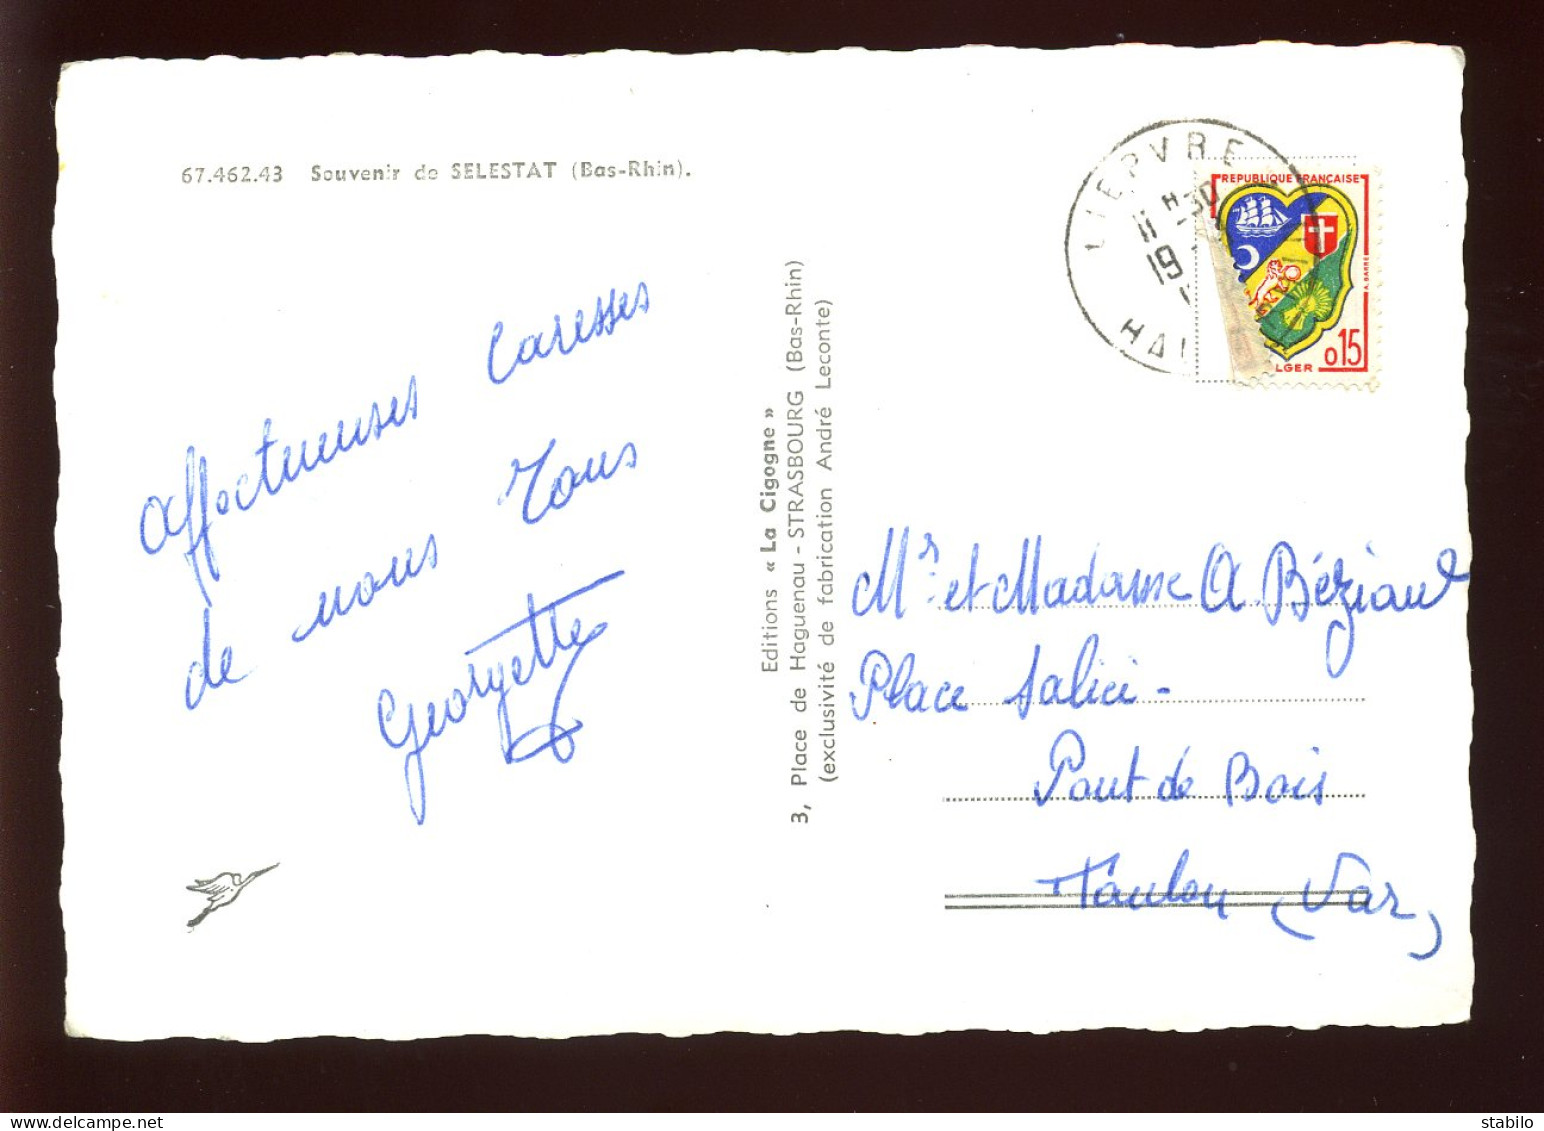 67.462.43 Souvenir de SELESTAT (Bas-Rhin).
Affectueuses Caresses
de nous Tous
Georgette
Editions « La Cigogne »
3, Place de Haguenau - STRASBOURG (Bas-Rhin)
(exclusivité de fabrication André Leconte)
LIEPVRE
11 H 30
19
HAU
REPUBLIQUE FRANÇAISE
LGER
0 15
Mr. et Madame A. Béziaud
Place Salici -
Pont de Bois
Toulon (Var)
stabilo